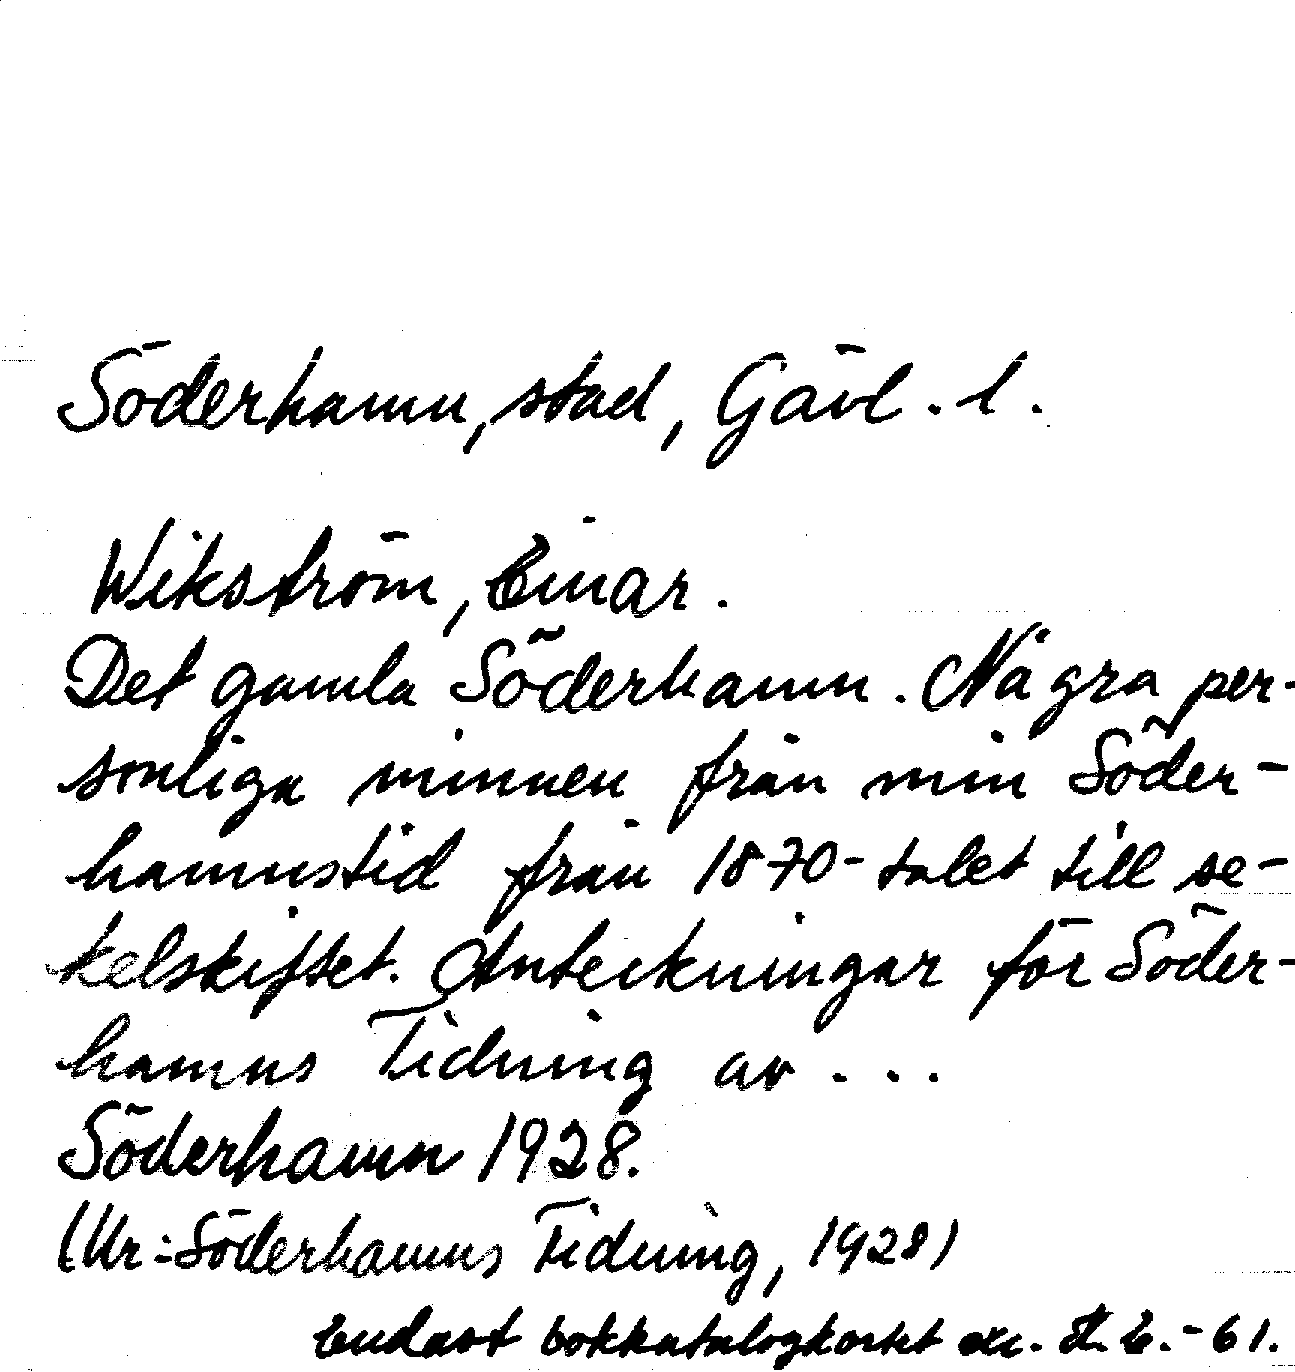 Söderhamn, stad, Gävl. l.
Wikström, Einar.
Det gamla Söderhamn. Några per-
sonliga minnen från min Söder-
hamnstid från 1870-talet till se-
kelskiftet. Anteckningar för Söder-
hamns Tidning av ...
Söderhamn 1928.
(Ur: Söderhamns Tidning, 1928)
Endast bokkatalogkortet ex. -61.